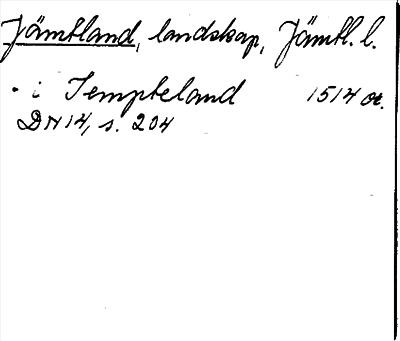 Jämtland, landskap, Jämtl. l.
· i Jempteland 1514 or.
DN 14, s. 204